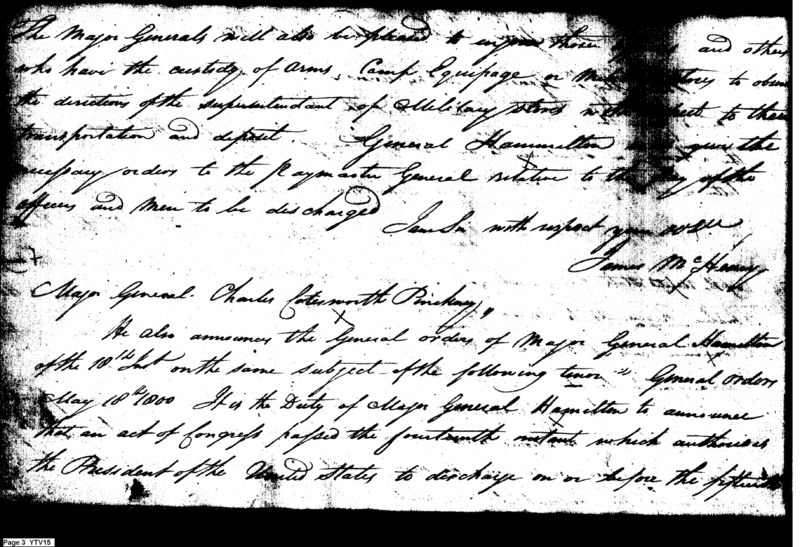 The Major Generals will also be pleased to enjoin those and others
who have the custody of Arms, Camp Equipage or stores to
the directions of the superintendant of Military stores with to their
transportation and deposit. General Hammelton will give the
necessary orders to the Paymaster General relative to the pay of the
officers and Men to be discharged
I am Sir with respect your
James McHenry
Major General Charles Cotesworth Pinckney,,
He also announces the General orders of Major General Hamelton
of the 18th Inst on the same subject of the following tenor General orders
May 18th 1800 It is the Duty of Major General Hamilton to announce
that an act of Congress passed the fourteenth instant which authorises
the President of the United States to discharge on or before the fifteenth
Page 3 YTV15